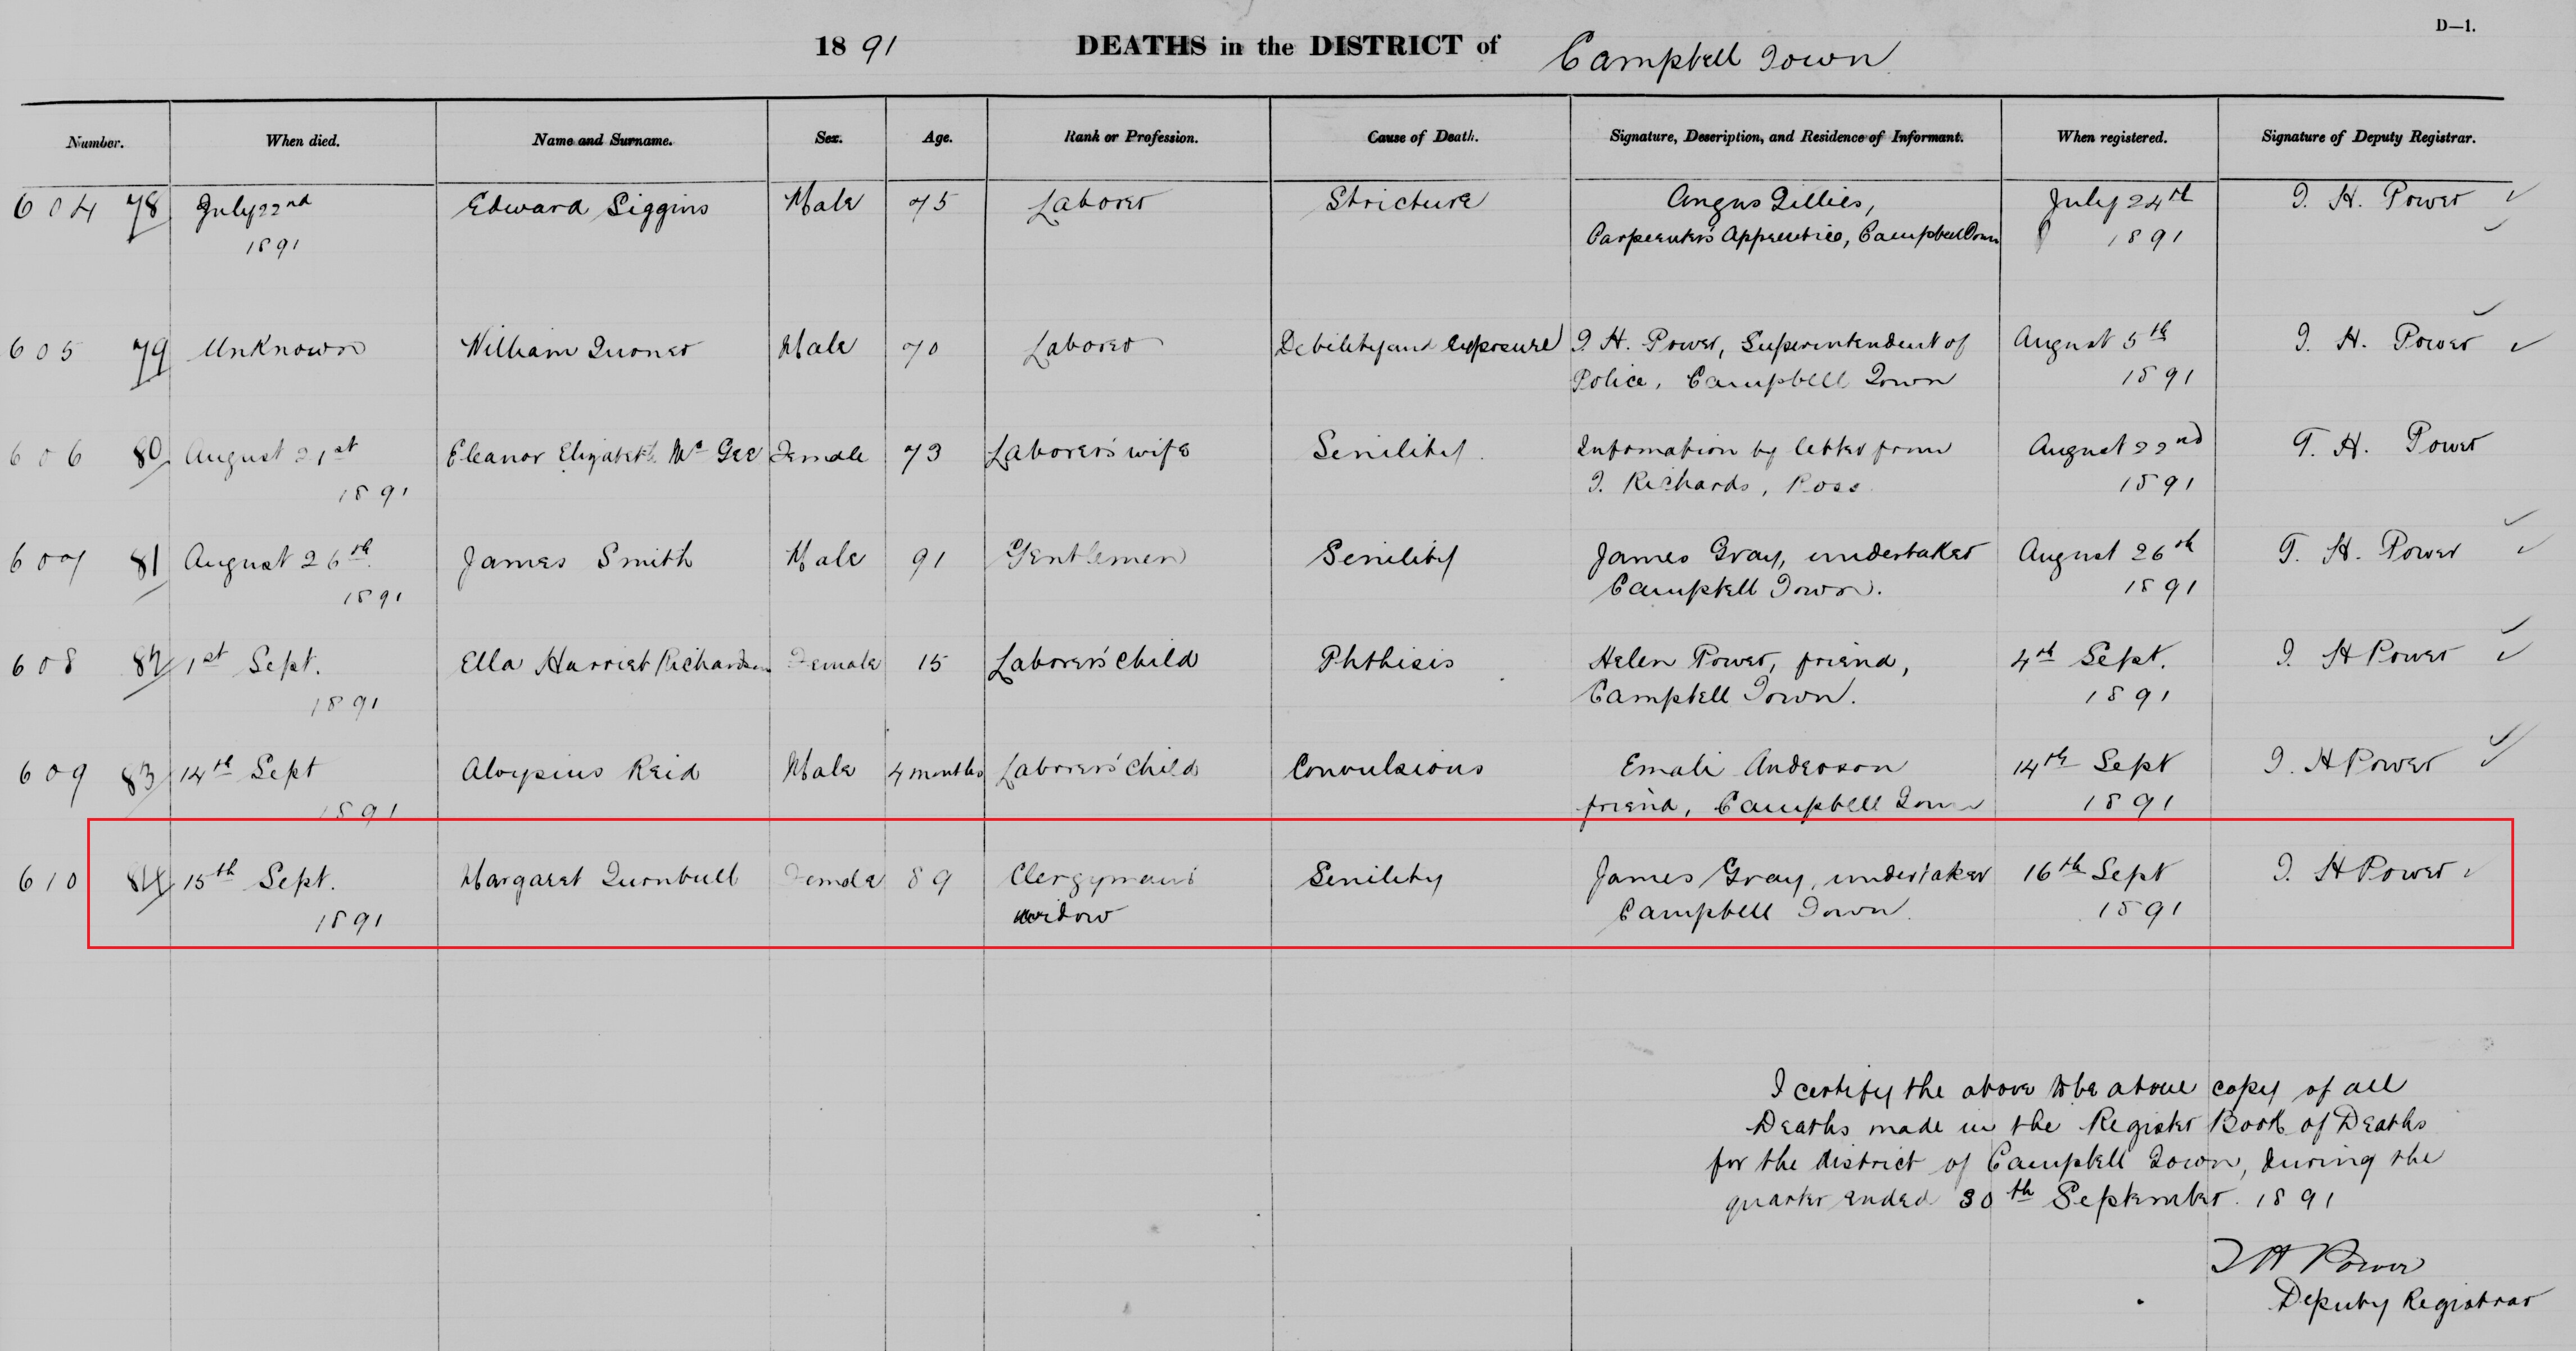 D—1.
18 91 DEATHS in the DISTRICT of Campbell Town
Number. When died. Name and Surname. Sex. Age. Rank or Profession. Cause of Death. Signature, Description, and Residence of Informant. When registered. Signature of Deputy Registrar.
604 78 July 22nd Edward Siggins Male 75 Laborer Stricture Angus Gillies, July 24th T. H. Power
1891 Carpenter's Apprentice, Campbell Town 1891
605 79 Unknown William Turner Male 70 Laborer Debility and exposure T. H. Power, Superintendent of August 5th T. H. Power
Police, Campbell Town 1891
606 80 August 21st Eleanor Elizabeth Mc Gee Female 73 Laborer's wife Senility. Infomation by letter from August 22nd T. H. Power
1891 T. Richards, Ross 1891
607 81 August 26th James Smith Male 91 Gentlemen Senility James Gray, undertaker August 26th T. H. Power
1891 Campbell Town. 1891
608 82 1st Sept. Ella Harriet Richardson Female 15 Laborer's child Phthisis Helen Power, friend, 4th Sept. T. H Power
1891 Campbell Town. 1891
609 83 14th Sept Aloysius Reid Male 4 months Laborer's child Convulsions Emali Anderson 14th Sept T. H Power
1891 friend, Campbell Town 1891
610 84 15th Sept. Margaret Turnbull Female 89 Clergyman's Senility James Gray, undertaker 16th Sept T. H Power
1891 widow Campbell Town. 1891
I certify the above to be a true copy of all
Deaths made in the Register Book of Deaths
for the district of Campbell Town, during the
quarter ended 30th September. 1891
T H Power
Deputy Registrar